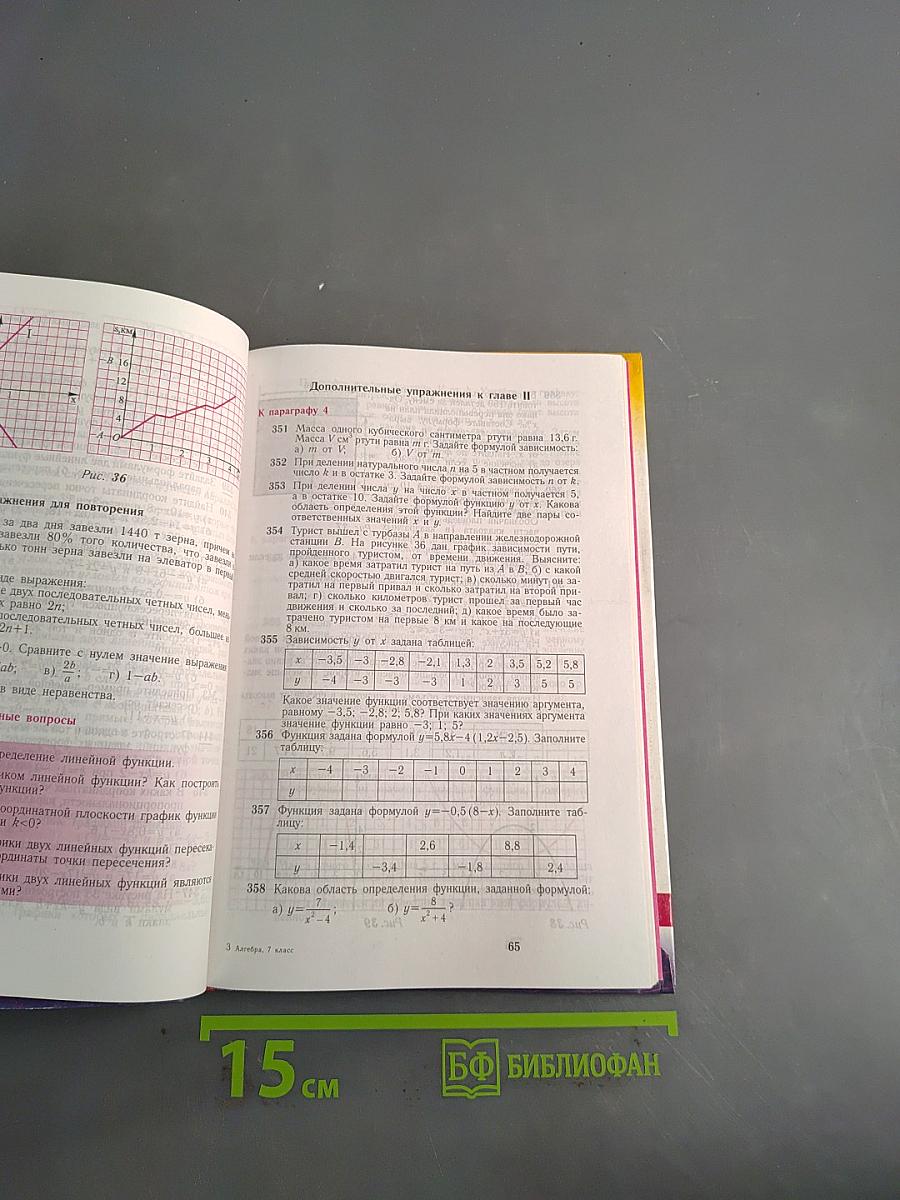 I
x
s, км
B 16
12
8
4
A O
1
2
3
4
Рис. 36
жнения для повторения
за два дня завезли 1440 т зерна, причем
завезли 80% того количества, что завезли
ько тонн зерна завезли на элеватор в первый
иде выражения:
е двух последовательных четных чисел, мень
х равно 2n;
последовательных четных чисел, большее и
2n+1.
0. Сравните с нулем значение выражения
ab; в) 2b/a; г) 1−ab.
в виде неравенства.
ные вопросы
ределение линейной функции.
иком линейной функции? Как построить
ункции?
оординатной плоскости график функции
и k<0?
рики двух линейных функций пересека-
рдинаты точки пересечения?
ики двух линейных функций являются
ми?
Дополнительные упражнения к главе II
К параграфу 4
351 Масса одного кубического сантиметра ртути равна 13,6 г.
Масса V см³ ртути равна m г. Задайте формулой зависимость:
а) m от V; б) V от m.
352 При делении натурального числа n на 5 в частном получается
число k и в остатке 3. Задайте формулой зависимость n от k.
353 При делении числа y на число x в частном получается 5,
а в остатке 10. Задайте формулой функцию y от x. Какова
область определения этой функции? Найдите две пары со-
ответственных значений x и y.
354 Турист вышел с турбазы A в направлении железнодорожной
станции B. На рисунке 36 дан график зависимости пути,
пройденного туристом, от времени движения. Выясните:
а) какое время затратил турист на путь из A в B; б) с какой
средней скоростью двигался турист; в) сколько минут он за-
тратил на первый привал и сколько затратил на второй при-
вал; г) сколько километров турист прошел за первый час
движения и сколько за последний; д) какое время было за-
трачено туристом на первые 8 км и какое на последующие
8 км.
355 Зависимость y от x задана таблицей:
x −3,5 −3 −2,8 −2,1 1,3 2 3,5 5,2 5,8
y −4 −3 −3 −3 1 2 3 5 5
Какое значение функции соответствует значению аргумента,
равному −3,5; −2,8; 2; 5,8? При каких значениях аргумента
значение функции равно −3; 1; 5?
356 Функция задана формулой y=5,8x−4(1,2x−2,5). Заполните
таблицу:
x −4 −3 −2 −1 0 1 2 3 4
y
357 Функция задана формулой y=−0,5(8−x). Заполните таб-
лицу:
x −1,4 2,6 8,8
y −3,4 −1,8 2,4
358 Какова область определения функции, заданной формулой:
а) y=7/(x²−4); б) y=8/(x²+4)?
3 Алгебра, 7 класс
65
15 см
БФ БИБЛИОФАН